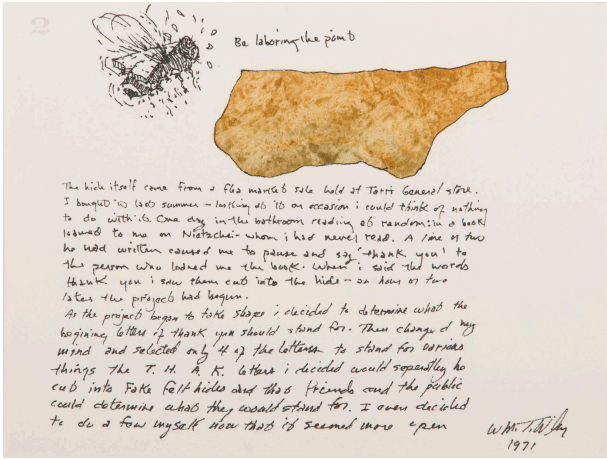 2
Be laboring the point
The hide itself came from a flea market sale held at Torri General store.
I bought it last summer - looking at it on occasion i could think of nothing
to do with it. One day in the bathroom reading at random: in a book
loaned to me on Nietzche - whom i had never read. A line or two
he had written caused me to pause and say "thank you" to
the person who loaned me the book. When i said the words
thank you i saw them cut into the hide - an hour or two
later the project had begun.
As the project began to take shape i decided to determine what the
begining letters of thank you should stand for. Then changed my
mind and selected only 4 of the letters to stand for various
things the T. H. A. K. letters i decided would seperatly be
cut into fake felt hides and that friends and the public
could determine what they would stand for. I even decided
to do a few myself now that it seemed more open
Wm. T. Wiley
1971